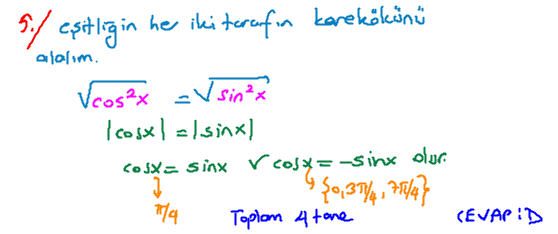 5./ eşitliğin her iki tarafın karekökünü
alalım.
√cos²x = √sin²x
|cosx| = |sinx|
cosx = sinx ∨ cosx = -sinx olur.
π/4 {0, 3π/4, 7π/4}
Toplam 4 tane CEVAP: D